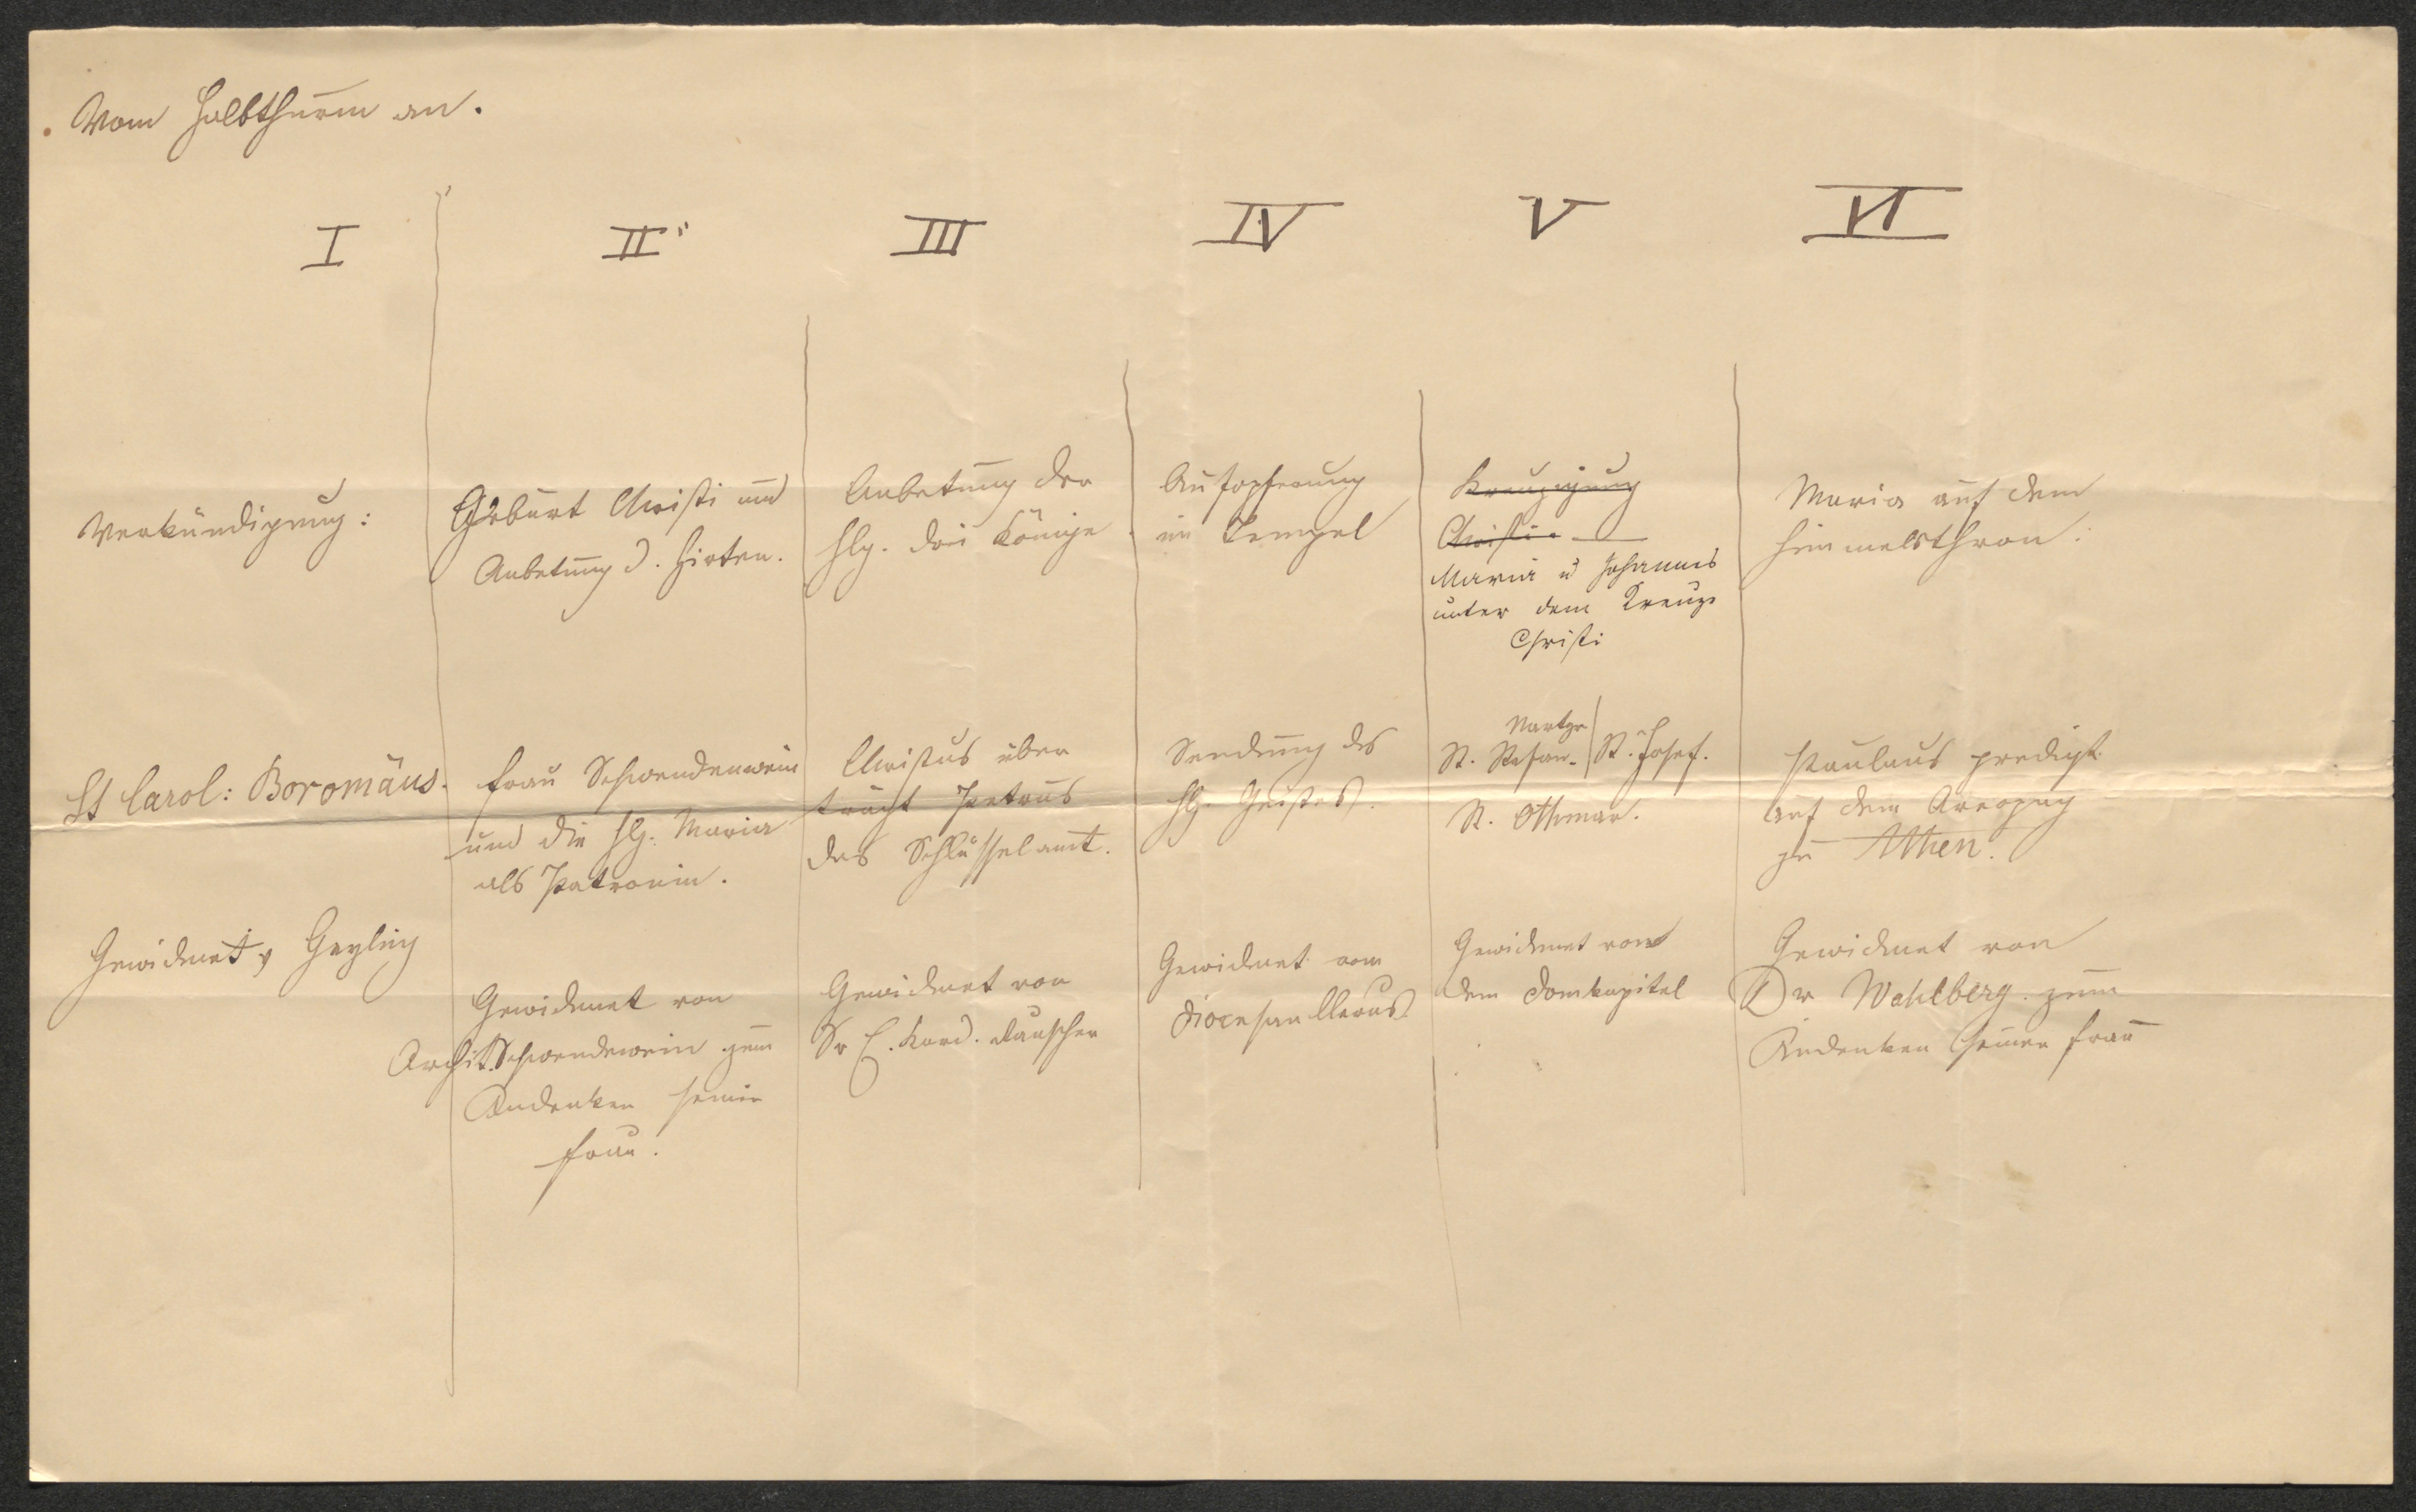 Vom Halbthurm an.
I
II
III
IV
V
VI
Verkündigung:
Geburt Christi und
Anbetung d. Hirten.
Anbetung der
hlg. drei Könige
Aufopferung
im Tempel
Kreuzigung
Christi.
Maria u Johannes
unter dem Kreuze
Christi
Maria auf dem
Himmelsthron.
St Carol: Boromäus.
Frau Schwendenwein
und die hlg. Maria
als Patronin.
Christus über
trägt Petrus
das Schlüsselamt.
Sendung des
hlg. Geistes.
St. Stefan. St. Josef.
St. Othmar.
Paulaus predigt
auf dem Areopag
zu Athen.
Gewidmet v Geyling
Gewidmet von
Archit. Schwendewein zum
Andenken seiner
Frau.
Gewidmet von
Sr E. Kard. Rauscher
Gewidmet vom
Diocesan Clerus
Gewidmet von
dem Domkapitel
Gewidmet von
Dr Wahlberg zum
Andenken seiner Frau